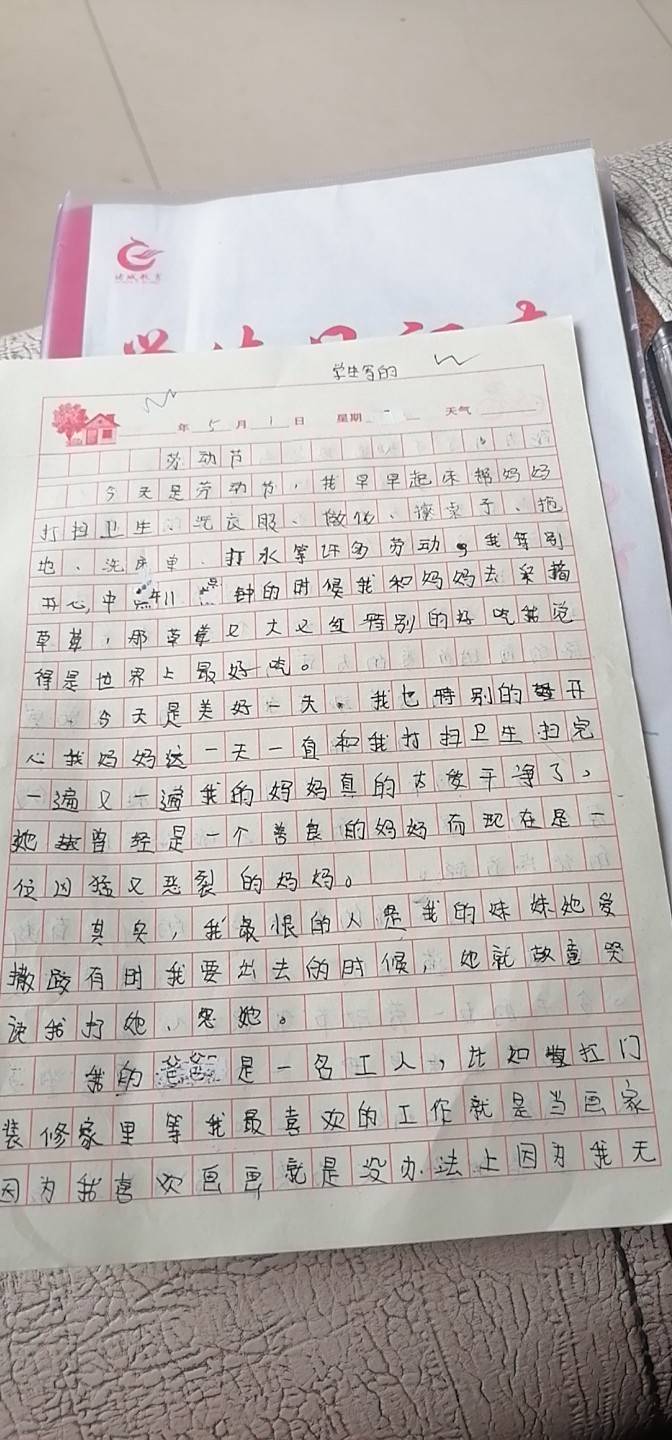 诸城教育
学生写的
年 5 月 1 日 星期 天气
劳动节
今天是劳动节，我早早起床帮妈妈
打扫卫生、洗衣服、做饭、擦桌子、拖
地、洗床单、打水等许多劳动，我特别
开心，中 钟的时候我和妈妈去采摘
草莓，那草莓又大又红特别的好吃我觉
得是世界上最好吃。
今天是美好一天。我也特别的开
心我妈妈这一天一直和我打扫卫生扫完
一遍又一遍我的妈妈真的太爱干净了。
她曾经是一个善良的妈妈而现在是一
位凶猛又恶裂的妈妈。
其实，我最恨的人是我的妹妹她爱
撒 有时我要出去的时候，她就故意哭
说我打她、惹她。
我的爸爸是一名工人，比如 门
装修家里等我最喜欢的工作就是当画家
因为我喜欢画画就是没办法上因为我无